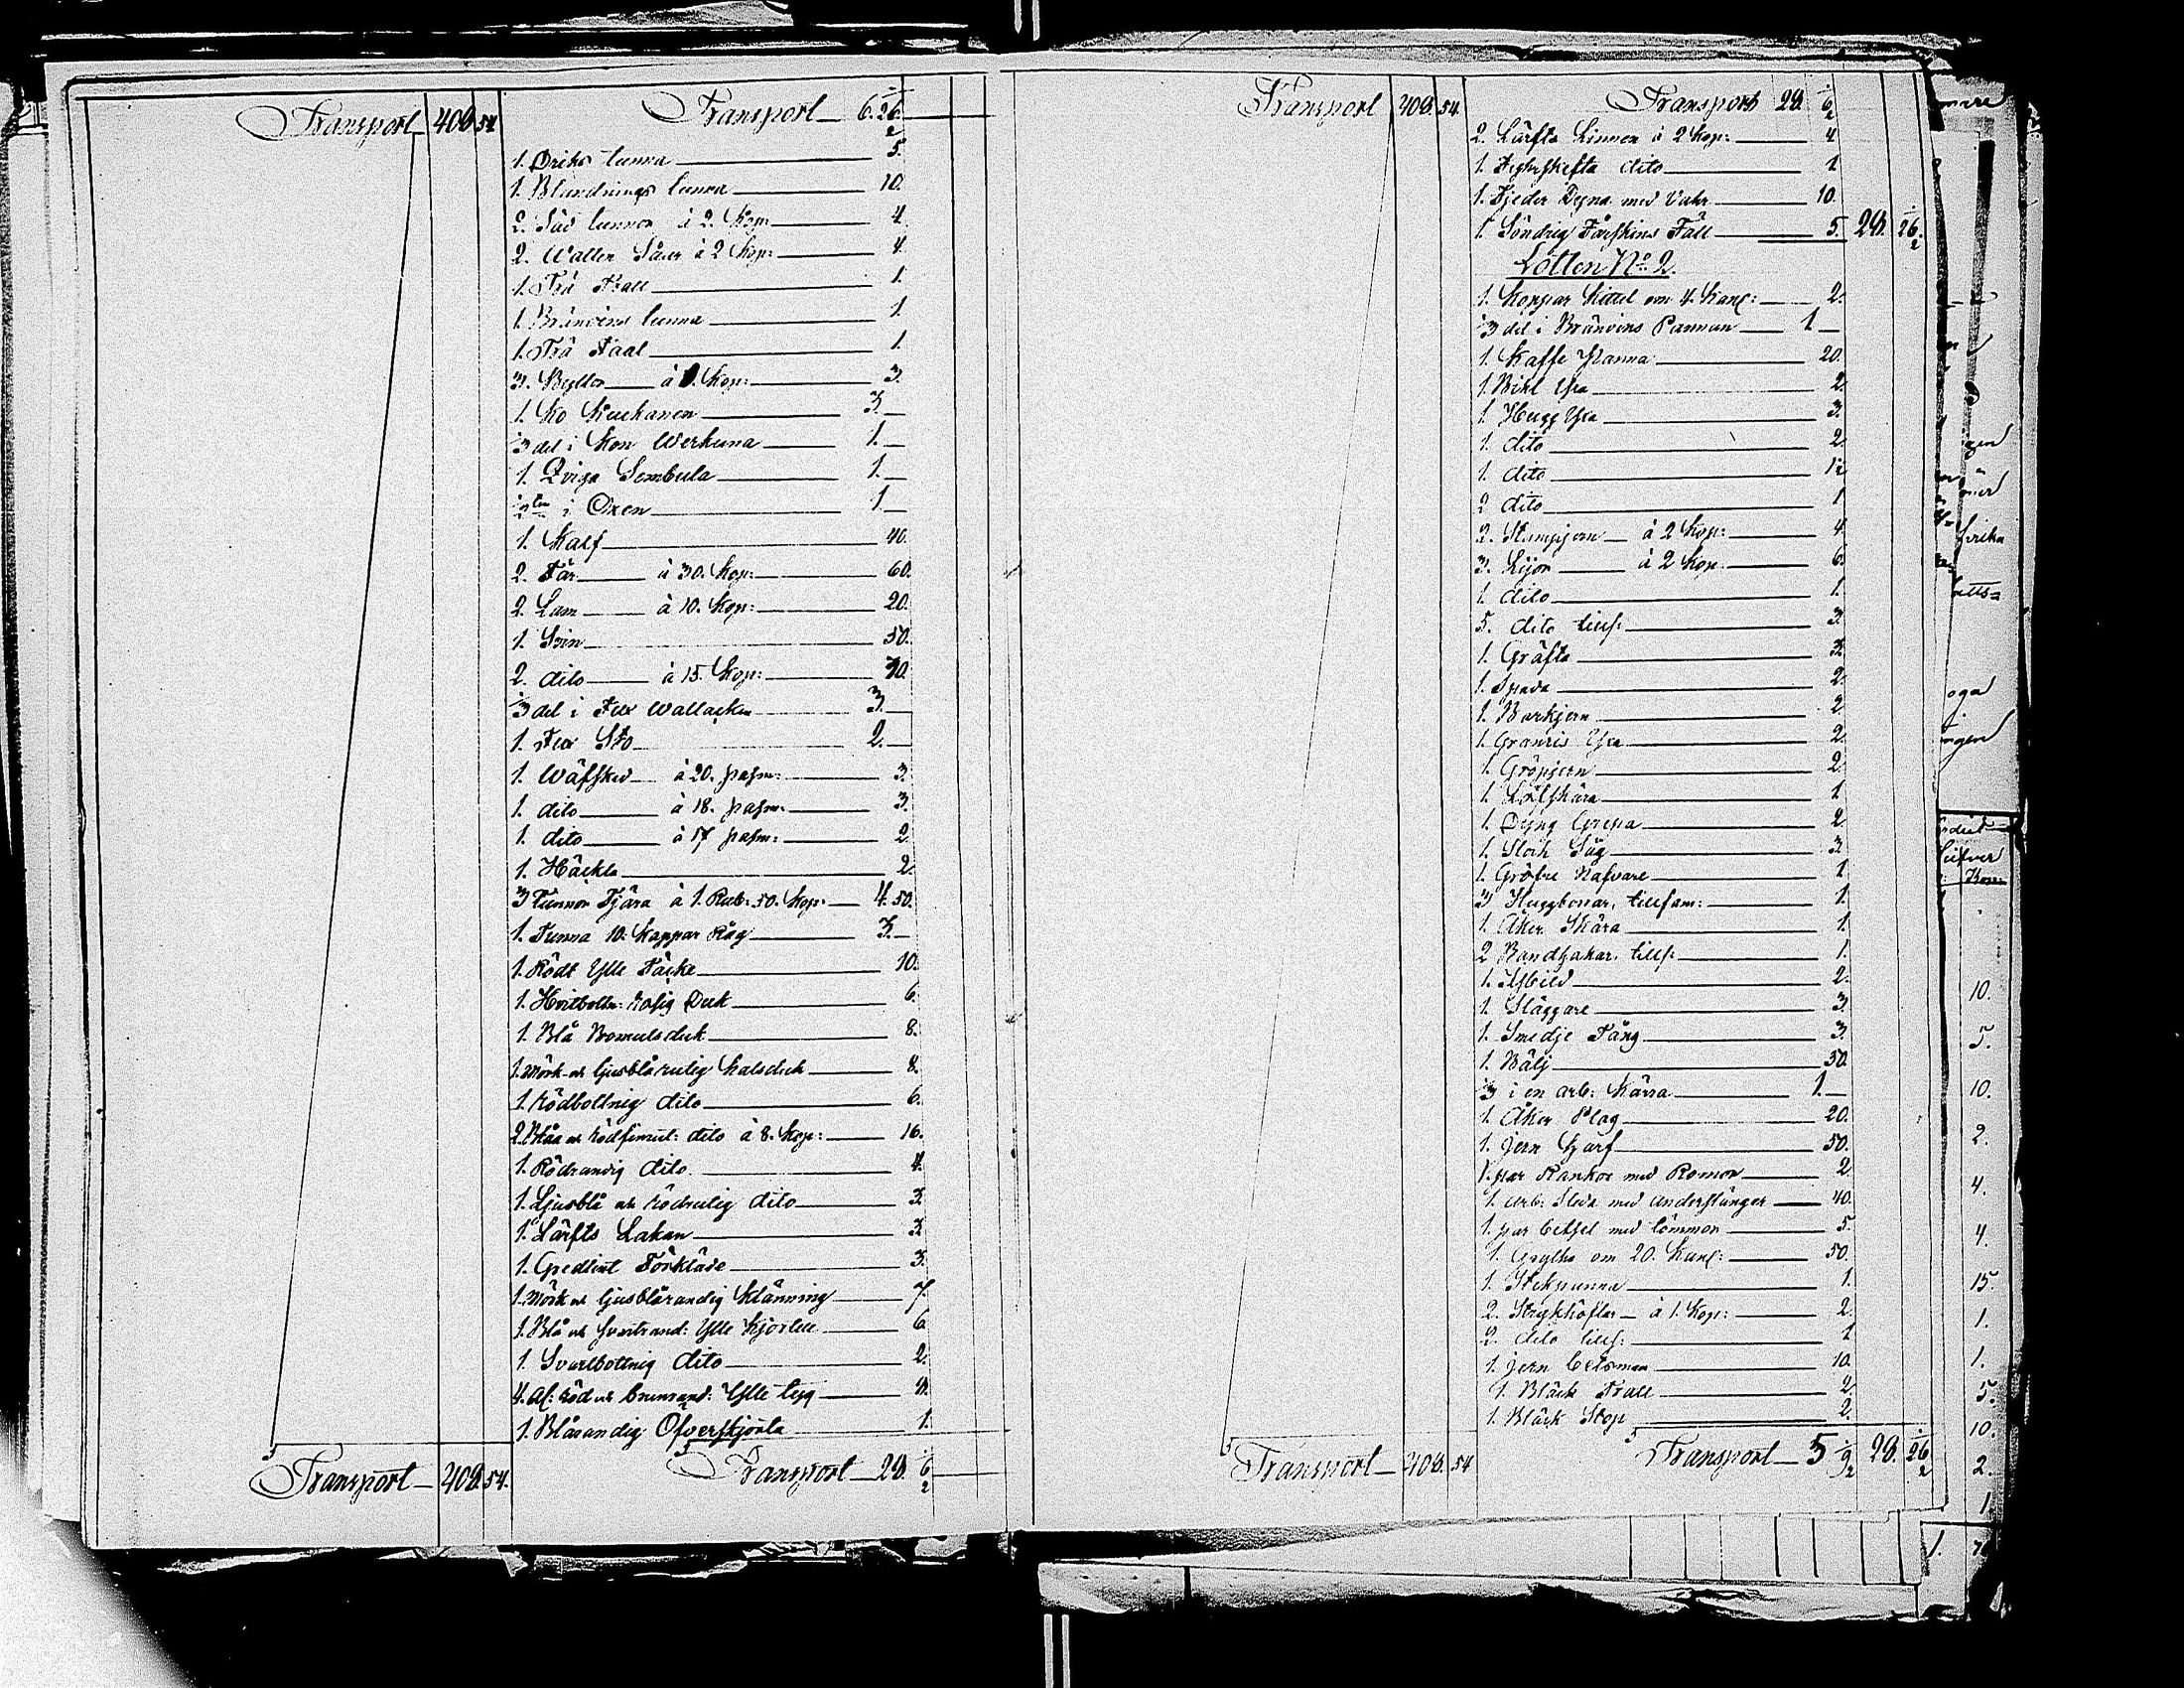 Transport 408. 54. Transport 6. 26 ½
1. Driks tunna 5.
1. Blandnings tunna 10.
2. Såd tunnor à 2. Kop: 4.
2. Watten Såar à 2 Kop: 4.
1. Trä Trall 1.
1. Bränvins tunna 1.
1. Trä Faal 1.
3. Byttor à 1. Kop: 3.
1. Ko 3.—
⅓ del i Kon Werkuna 1.—
1. Qviga Sembula 1.—
½ i Oxen 1.—
1. Kalf 40.
2. Får à 30. Kop: 60.
2. Lam à 10. Kop: 20.
1. Svin 50.
2. dito à 15. Kop: 30.
⅓ del i Fux Wallacken 3.—
1. Fux Sto 2.—
1. Wäfsked à 20. pasm: 3.
1. dito à 18. pasm: 3.
1. dito à 17 pasm: 2.
1. Häckla 2.
3 Tunnor Tjära à 1. Rub: 50. Kop: 4. 50.
1. Tunna 10. Kappar Råg 3.—
1. Rödt Ylle Täcke 10.
1. Hvitbottn: rosig Duk 6.
1. Blå Bomulsduk 8.
1. Mörk och ljusblårutig halsduk 8.
1. rödbottnig dito 6.
2. Blåa och rödfimul: dito à 8. Kop: 16.
1. Rödrandig dito 4.
1. Ljusblå och rödrutig dito 3.
1. Lärfts Lakan 3.
1. Gredlint Förkläde 3.
1. Mörk och ljusblårandig Klänning 7.
1. Blå och svartrand: Ylle Kjortel 6.
1. Svartbottnig dito 2.
4. Al: röd och brunrand: Ylle tyg
1. Blårandig Öfverskjorta 1.
Transport 408. 54. Transport 28. 6 ½
Transport 408. 54. Transport 28. 6 ½
2. Lärfts Linnen à 2 Kop: 4
1. dito 1
1. Fjeder Dyna med Vahr 10.
1. Söndrig Fårskins Fäll 5. 28. 26. ½
Lotten No 2.
1. Koppar Kittel om 4. Kan: 2.
⅓ del i Bränvins Pannan 1.—
1. Kaffe Panna 20.
1. Bihl Yxa 2.
1. Hugg Yxa 3.
1. dito 2.
1. dito 1½
2 dito 1
2. Stampjern à 2 Kop: 4.
3. Lijor à 2 Kop. 6.
1. dito 1.
5. dito tills: 3.
1. Gräfta 3.
1. Spada 2.
1. Barkjern 2
1. Granris Yxa 2.
1. Gröpjern 2.
1. Löfskära 1
1. Dyng Grepa 2
1. Stock Såg 3
1. Gröfre Nafvare 1
3 Huggbonar, tillsam: 1.
1. Åker Skära 1.
2 Bandhakar, tills: 1.
1. Isbild 2.
1. Släggare 3.
1. Smedje Tång 3.
1. Bälj 50.
⅓ i en arb: Kärra 1.—
1. Åker Plog 20.
1. Jern Harf 50.
1. par Rankor med Remor 2
1. arb: Släda med understänger 40.
1. par betsel med tömmor 5.
1. Gryta om 20. Kan: 50.
1. Stekpanna 1.
2. à 1. Kop: 2.
2. dito tills: 1
1. Jern betsman 10.
1. Bläck Trall 2.
1. Bläck Stop 2.
Transport 408. 54 Transport 5 9 ½ 28. 26 ½